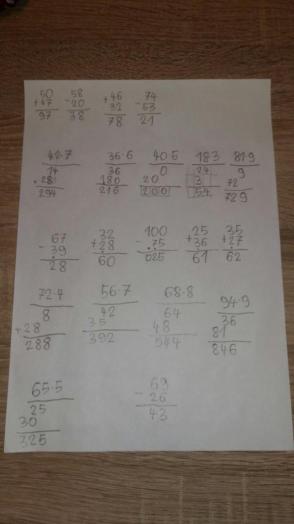 50 58 +46 74
+47 -20 32 -53
97 38 78 21
42·7 36·6 40·5 18·3 81·9
14 36 0 24 9
+28 180 20 3 72
294 216 200 54 729
-67 32 -100 25 35
39 +28 75 +36 +27
28 60 025 61 62
72·4 56·7 68·8 94·9
8 42 64 36
+28 35 48 81
288 392 544 846
65·5 -69
25 26
30 43
325